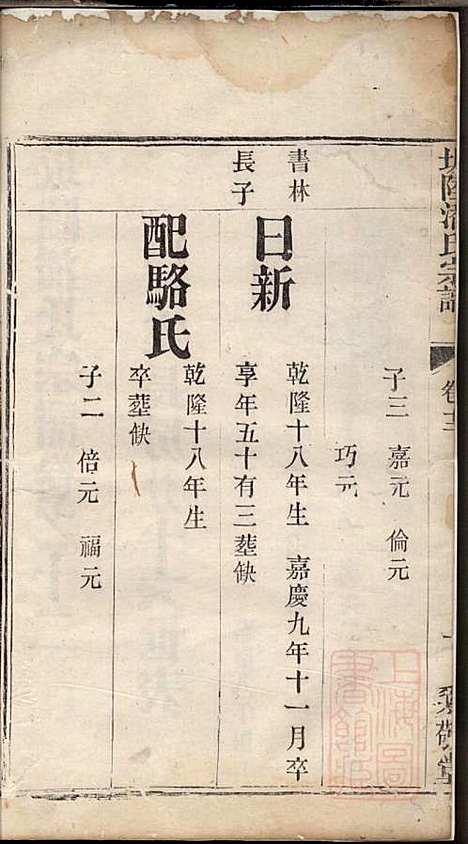 氏宗譜
卷三
敬堂
子三 嘉元 倫元
巧元
書林
長子
日新
乾隆十八年生 嘉慶九年十一月卒
享年五十有三塟缺
配駱氏
乾隆十八年生
卒塟缺
子二 倍元 福元
上海圖
書館